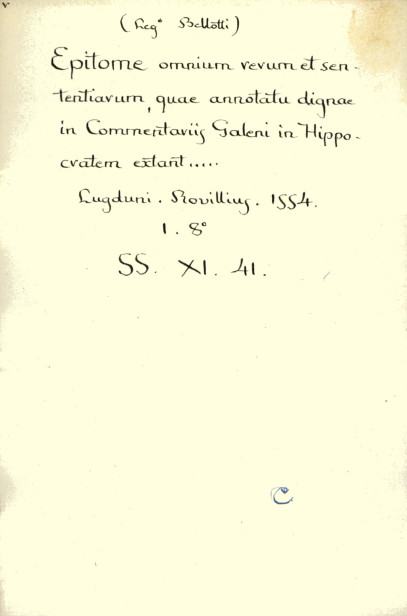 v
(Leg° Bellotti)
Epitome omnium rerum et sen-
tentiarum, quae annotatu dignae
in Commentariis Galeni in Hippo-
cratem extant.....
Lugduni. Rovillius. 1554.
1. 8°
SS. XI. 41.
C